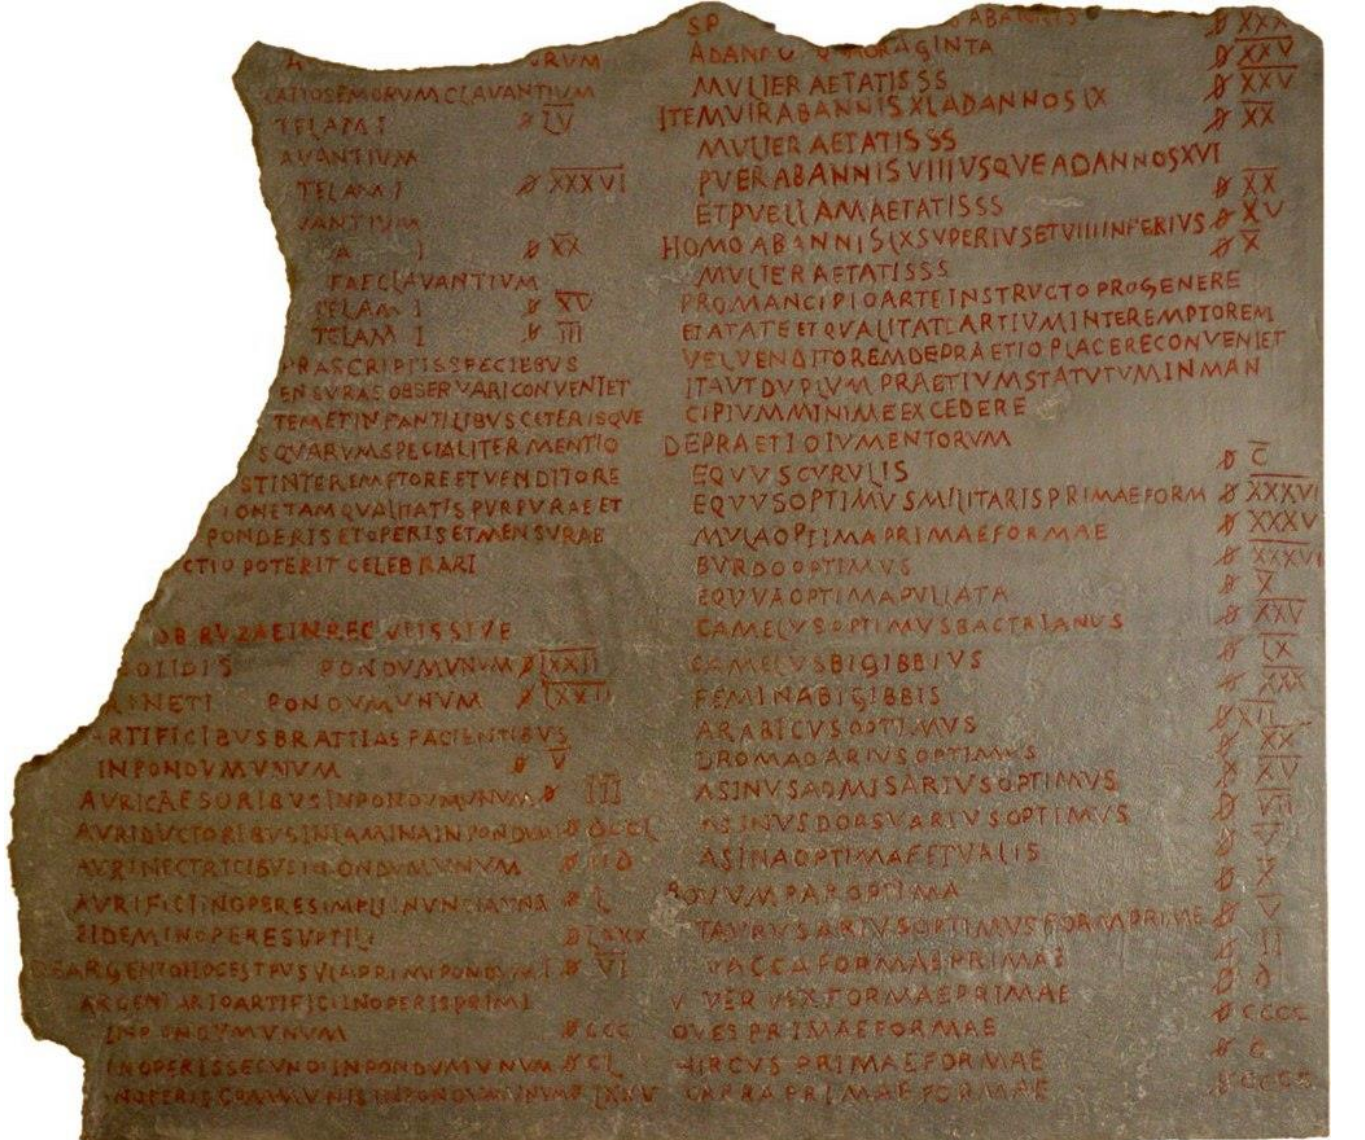 RVM
CLAVANTIVM
TELAM I 𐆖 LV
AVANTIVM
TELAM I 𐆖 XXXVI
VANTIVM
A I 𐆖 XX
FAE CLAVANTIVM
TELAM I 𐆖 XV
TELAM I 𐆖 III
PRASCRIPTIS SPECIEBVS
ENSVRAS OBSERVARI CONVENIET
TEM ET INFANTILIBVS CETERISQVE
S QVARVM SPECIALITER MENTIO
ST INTER EMPTORE ET VENDITORE
IONE TAM QVALITATIS PVRPVRAE ET
PONDERIS ET OPERIS ET MENSVRAE
CTIO POTERIT CELEBRARI
OBRVZAE IN REGVLIS SIVE
SOLIDIS PONDVM VNVM 𐆖 LXXII
NETI PONDVM VNVM 𐆖 LXXII
ARTIFICIBVS BRATTIAS FACIENTIBVS
IN PONDVM VNVM 𐆖 V
AVRICAESORIBVS IN PONDVM VNVM 𐆖 III
AVRIDVCTORIBVS IN LAMINA IN PONDVM I 𐆖 DCCL
AVRINECTRICIBVS IN PONDVM VNVM
AVRIFICI IN OPERE SIMPLI IN VNCIA VNA 𐆖 L
EIDEM IN OPERE SVPTILI 𐆖 LXXX
DE ARGENTO HOC EST PVSVLA PRIMI PONDVM I 𐆖 VI
ARGENTARIO ARTIFICI IN OPERIS PRIMI
IN PONDVM VNVM 𐆖 CCC
IN OPERIS SECVNDI IN PONDVM VNVM 𐆖 CL
IN OPERIS COMMVNIS IN PONDVM VNVM 𐆖 LXXV
AB ANNIS 𐆖 XXX
AD AN QVADRAGINTA 𐆖 XXV
MVLIER AETATIS SS 𐆖 XXV
ITEM VIR AB ANNIS XL AD ANNOS LX 𐆖 XX
MVLIER AETATIS SS
PVER AB ANNIS VIII VSQVE AD ANNOS XVI
ET PVELLAM AETATIS SS 𐆖 XX
HOMO AB ANNIS LX SVPERIVS ET VIII INFERIVS 𐆖 XV
MVLIER AETATIS SS 𐆖 X
PRO MANCIPIO ARTE INSTRVCTO PRO GENERE
ET ATATE ET QVALITATE ARTIVM INTER EMPTOREM
VEL VENDITOREM DE PRAETIO PLACERE CONVENIET
ITA VT DVPLVM PRAETIVM STATVTVM IN MAN
CIPIVM MINIME EXCEDERE
DE PRAETIO IVMENTORVM
EQVVS CVRVLIS 𐆖 C
EQVVS OPTIMVS MILITARIS PRIMAE FORM 𐆖 XXXVI
MVLA OPTIMA PRIMAE FORMAE 𐆖 XXXV
BVRDO OPTIMVS 𐆖 XXXVI
EQVVA OPTIMA PVLLATA 𐆖 X
CAMELVS OPTIMVS BACTRIANVS 𐆖 XXV
CAMELVS BIGIBBIVS 𐆖 LX
FEMINA BIGIBBIS 𐆖 XXX
ARABICVS OPTIMVS 𐆖 XII
DROMADARIVS OPTIMVS 𐆖 XX
ASINVS ADMISARIVS OPTIMVS 𐆖 XV
ASINVS DORSVARIVS OPTIMVS 𐆖 VII
ASINA OPTIMA FETVALIS 𐆖 V
BOVVM PAR OPTIMA 𐆖 X
TAVRVS ARIVS OPTIMVS FORM PRIME 𐆖 V
VACCA FORMAE PRIMAE 𐆖 II
VERVEX FORMAE PRIMAE 𐆖 D
OVES PRIMAE FORMAE 𐆖 CCCC
HIRCVS PRIMAE FORMAE 𐆖 C
CAPRA PRIMAE FORMAE 𐆖 CCCC